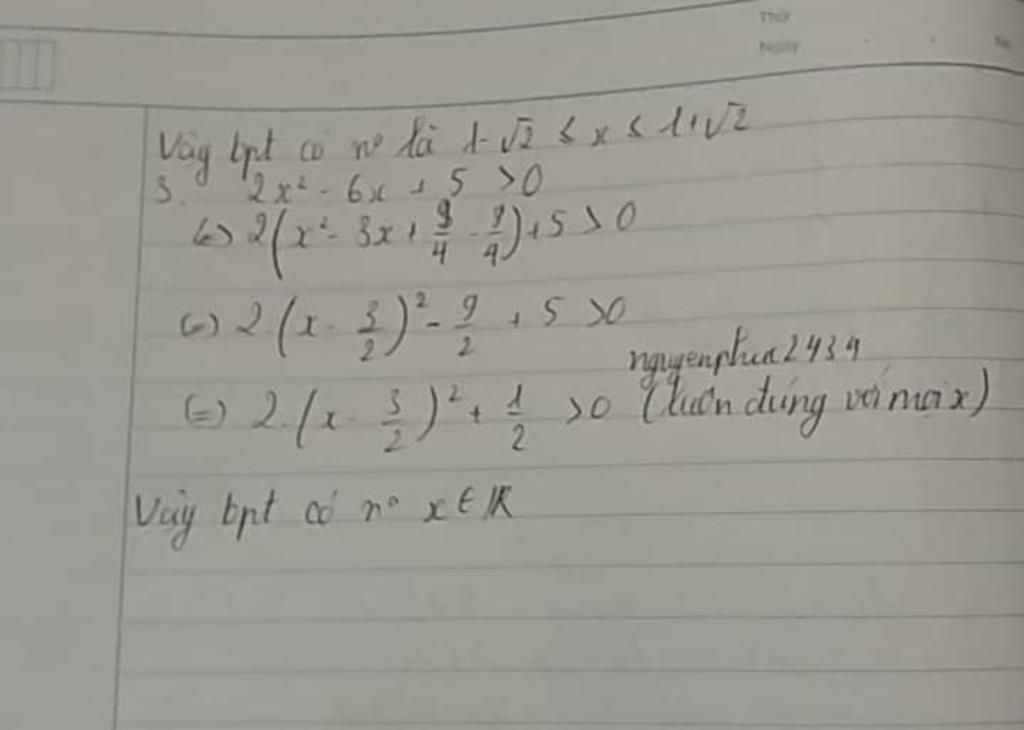 Thứ
Ngày
No
Vậy bpt có nº là 1-√2 ≤ x ≤ 1+√2
3. 2x² - 6x + 5 >0
<=> 2(x² - 3x + 9/4 - 9/4) + 5 > 0
<=> 2.(x - 3/2)² - 9/2 + 5 >0
nguyenphuc2434
<=> 2.(x - 3/2)² + 1/2 >0 (luôn đúng với mọi x)
Vậy bpt có nº x ∈ ℝ